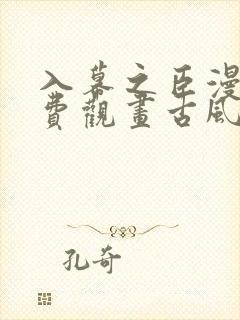 入幕之臣漫
費觀畫古風
孔奇